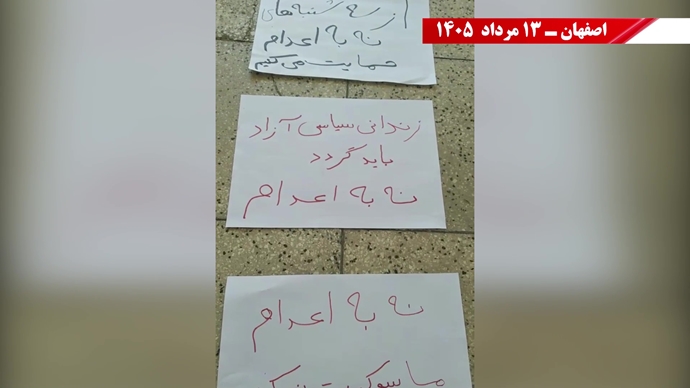 اصفهان ــ ۱۳ مرداد ۱۴۰۵
از سه شنبه های
نه به اعدام
حمایت می کنیم
زندانی سیاسی آزاد
باید گردد
نه به اعدام
نه به اعدام
ما سوکت